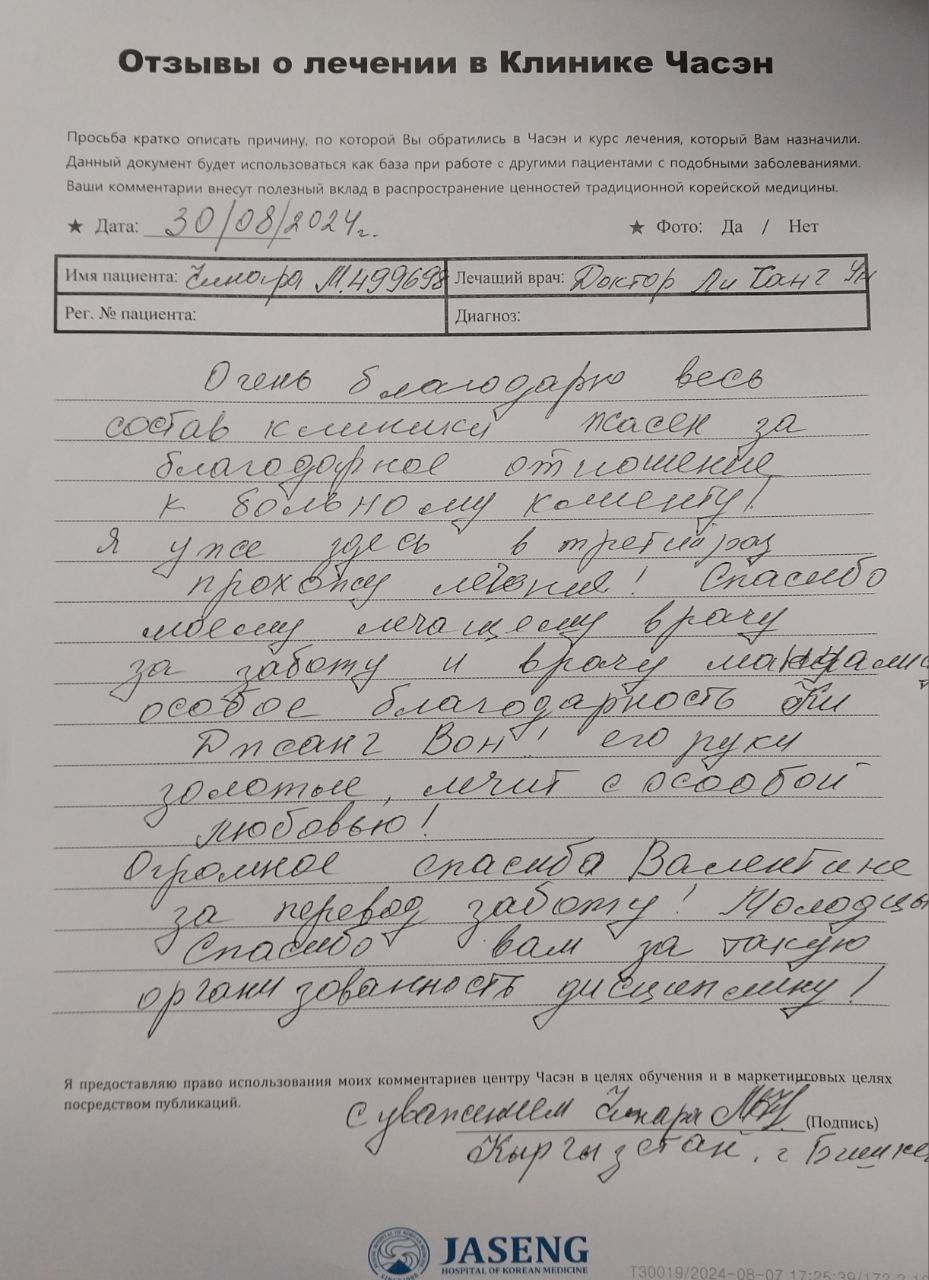 Отзывы о лечении в Клинике Часэн
Просьба кратко описать причину, по которой Вы обратились в Часэн и курс лечения, который Вам назначили.
Данный документ будет использоваться как база при работе с другими пациентами с подобными заболеваниями.
Ваши комментарии внесут полезный вклад в распространение ценностей традиционной корейской медицины.
★ Дата: 30/08/2024г. ★ Фото: Да / Нет
Имя пациента: М.499698 Лечащий врач: Доктор Ли Ханг Ун
Рег. № пациента: Диагноз:
Очень благодарю весь
состав клиники жасен за
благодарное отношение
к больному клиенту!
Я уже здесь в третий раз
прохожу лечение! Спасибо
моему лечащему врачу
за заботу и врачу
особое благодарность Ки
Джсанг Вон! его руки
золотые, лечит с осообой
любовью!
Огромное спасиба Валентине
за перевод заботу! Молодцы
Спасибо вам за такую
организованность дисциплину!
Я предоставляю право использования моих комментариев центру Часэн в целях обучения и в маркетинговых целях
посредством публикаций.
С уважением (Подпись)
Кыргызстан, г Бишке
JASENG
HOSPITAL OF KOREAN MEDICINE
T30019/2024-08-07 17:25:39/172